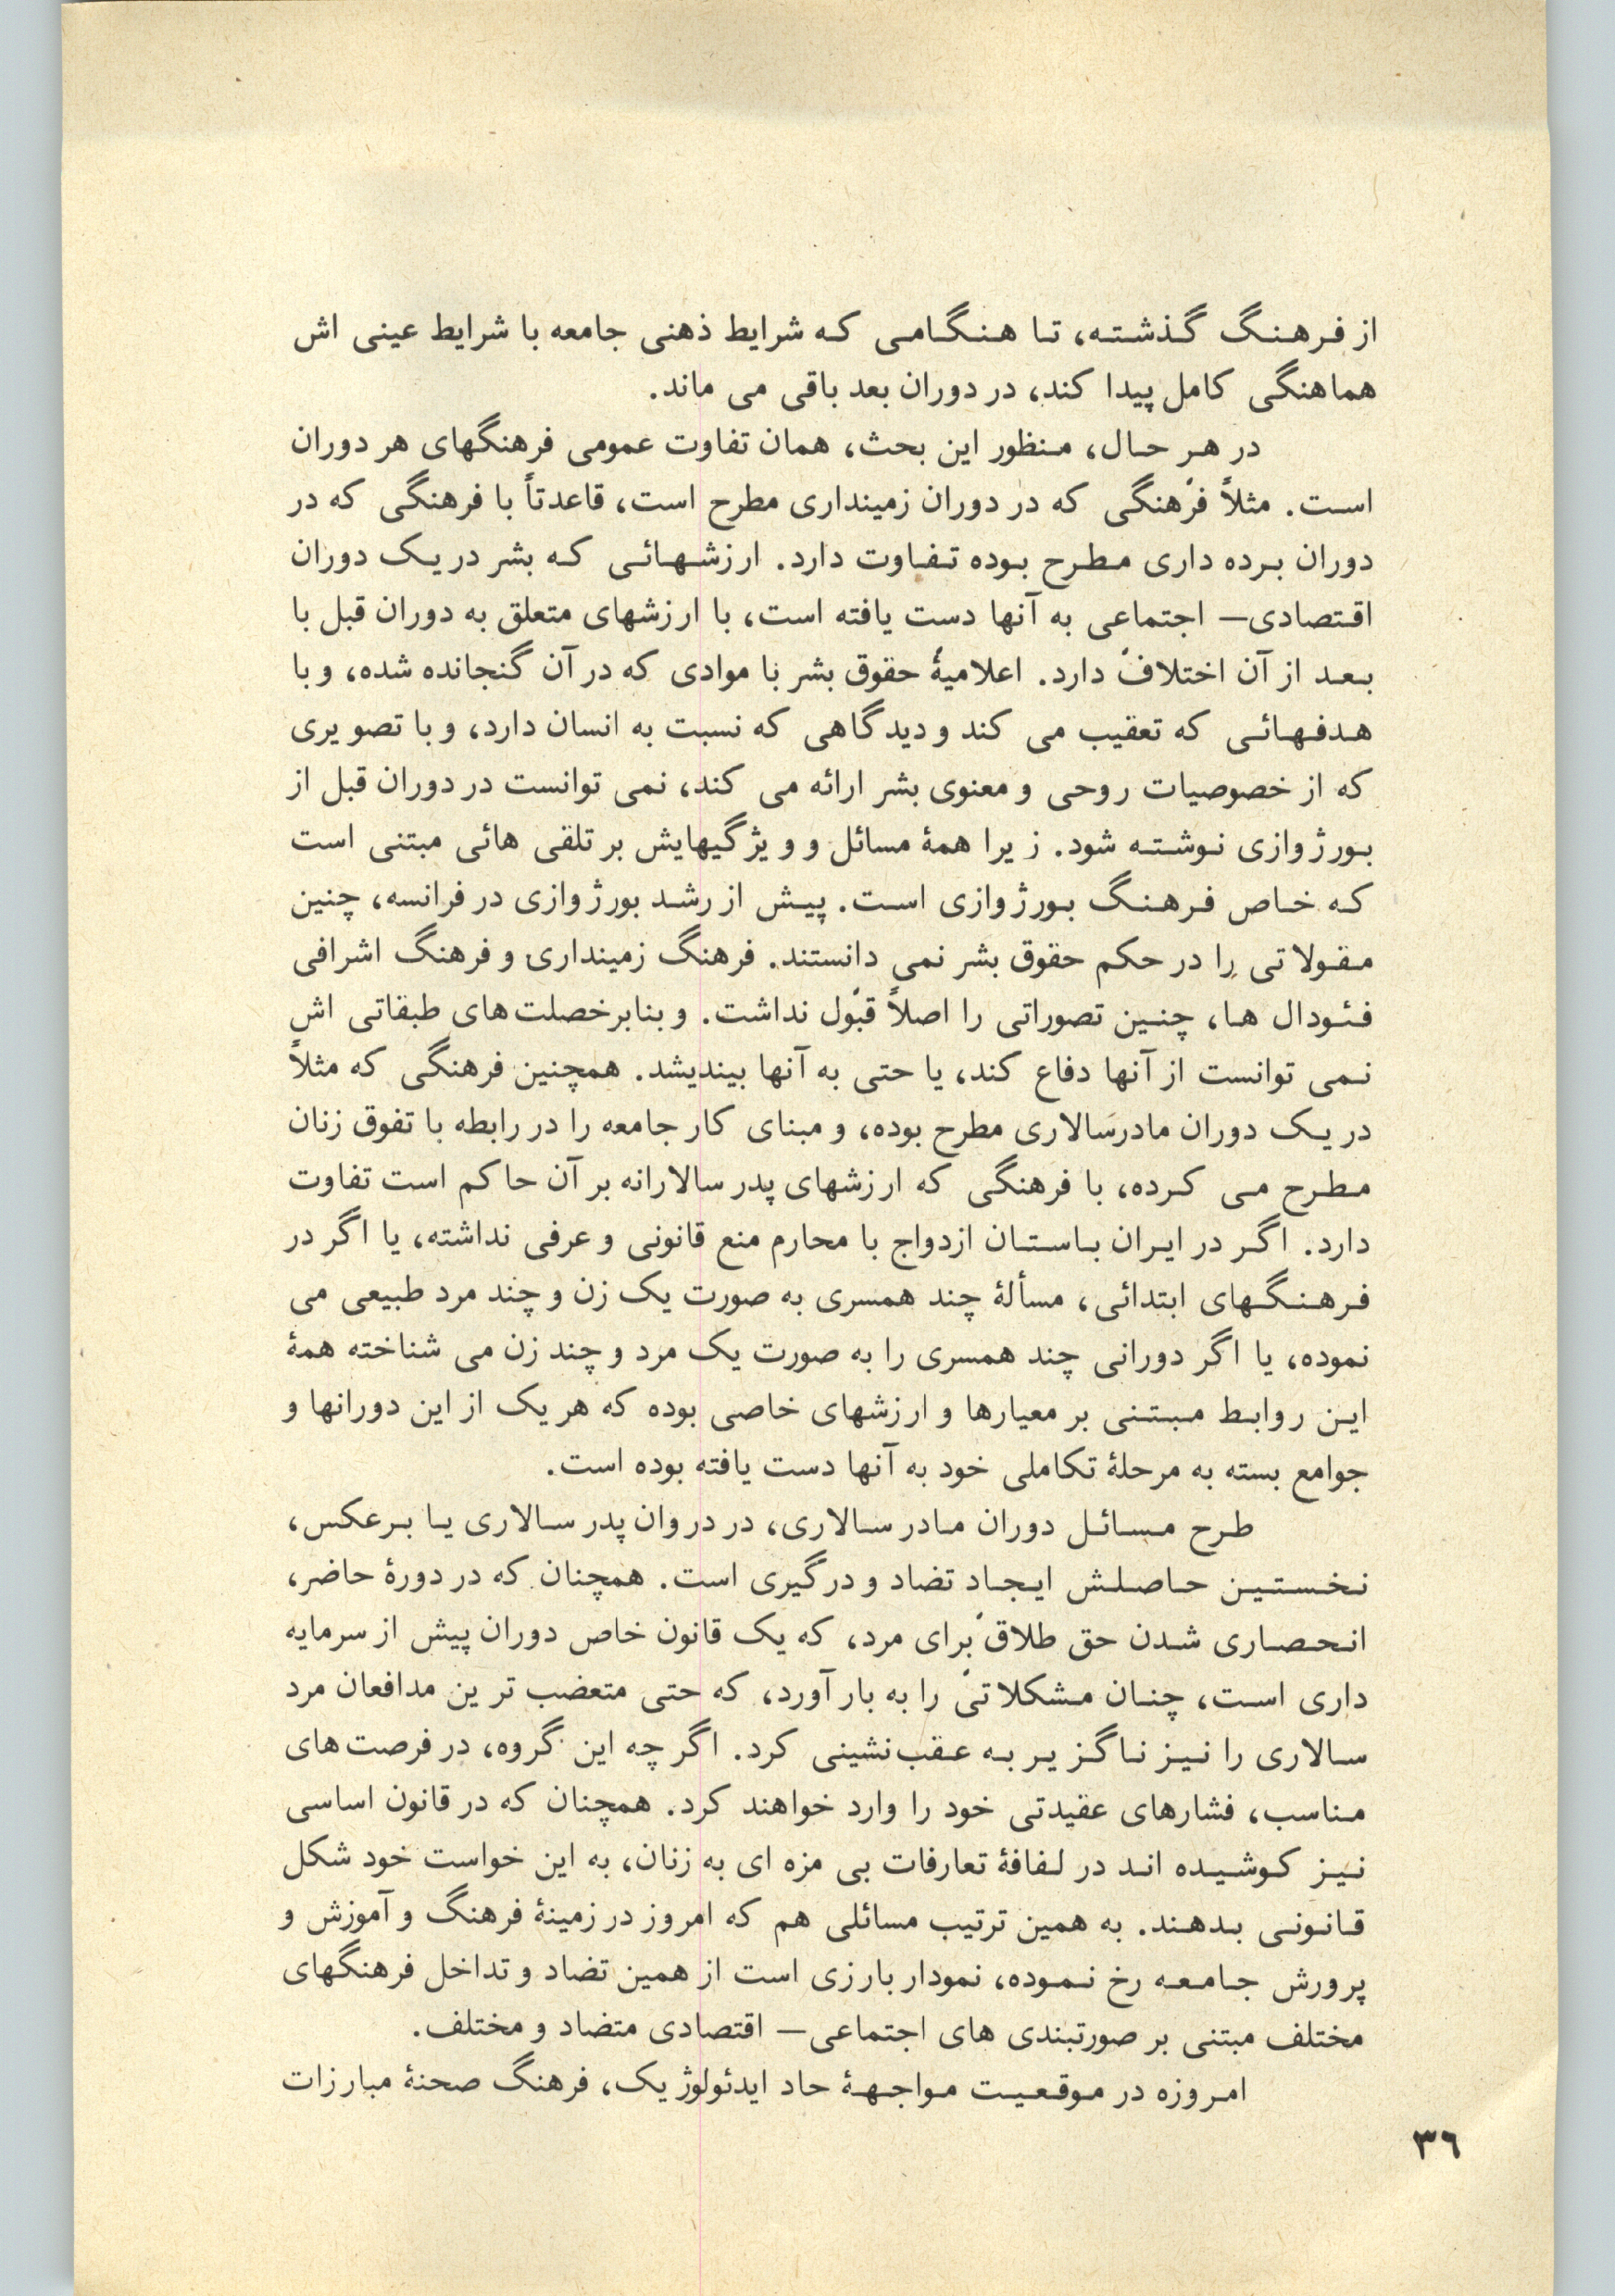 از فرهنگ گذشته، تا هنگامی که شرایط ذهنی جامعه با شرایط عینی اش
هماهنگی کامل پیدا کند، در دوران بعد باقی می ماند.
در هر حال، منظور این بحث، همان تفاوت عمومی فرهنگهای هر دوران
است. مثلاً فرهنگی که در دوران زمینداری مطرح است، قاعدتاً با فرهنگی که در
دوران برده داری مطرح بوده تفاوت دارد. ارزشهائی که بشر در یک دوران
اقتصادی— اجتماعی به آنها دست یافته است، با ارزشهای متعلق به دوران قبل با
بعد از آن اختلاف دارد. اعلامیهٔ حقوق بشر با موادی که در آن گنجانده شده، و با
هدفهائی که تعقیب می کند و دیدگاهی که نسبت به انسان دارد، و با تصویری
که از خصوصیات روحی و معنوی بشر ارائه می کند، نمی توانست در دوران قبل از
بورژوازی نوشته شود. زیرا همهٔ مسائل و ویژگیهایش بر تلقی هائی مبتنی است
که خاص فرهنگ بورژوازی است. پیش از رشد بورژوازی در فرانسه، چنین
مقولاتی را در حکم حقوق بشر نمی دانستند. فرهنگ زمینداری و فرهنگ اشرافی
فئودال ها، چنین تصوراتی را اصلاً قبول نداشت. و بنابر خصلت‌های طبقاتی اش
نمی توانست از آنها دفاع کند، یا حتی به آنها بیندیشد. همچنین فرهنگی که مثلاً
در یک دوران مادرسالاری مطرح بوده، و مبنای کار جامعه را در رابطه با تفوق زنان
مطرح می کرده، با فرهنگی که ارزشهای پدر سالارانه بر آن حاکم است تفاوت
دارد. اگر در ایران باستان ازدواج با محارم منع قانونی و عرفی نداشته، یا اگر در
فرهنگهای ابتدائی، مسألهٔ چند همسری به صورت یک زن و چند مرد طبیعی می
نموده، یا اگر دورانی چند همسری را به صورت یک مرد و چند زن می شناخته همهٔ
این روابط مبتنی بر معیارها و ارزشهای خاصی بوده که هر یک از این دورانها و
جوامع بسته به مرحلهٔ تکاملی خود به آنها دست یافته بوده است.
طرح مسائل دوران مادر سالاری، در دروان پدر سالاری یا برعکس،
نخستین حاصلش ایجاد تضاد و درگیری است. همچنان که در دورهٔ حاضر،
انحصاری شدن حق طلاق برای مرد، که یک قانون خاص دوران پیش از سرمایه
داری است، چنان مشکلاتی را به بار آورد، که حتی متعضب ترین مدافعان مرد
سالاری را نیز ناگزیر به عقب‌نشینی کرد. اگر چه این گروه، در فرصت‌های
مناسب، فشارهای عقیدتی خود را وارد خواهند کرد. همچنان که در قانون اساسی
نیز کوشیده اند در لفافهٔ تعارفات بی مزه ای به زنان، به این خواست خود شکل
قانونی بدهند. به همین ترتیب مسائلی هم که امروز در زمینهٔ فرهنگ و آموزش و
پرورش جامعه رخ نموده، نمودار بارزی است از همین تضاد و تداخل فرهنگهای
مختلف مبتنی بر صورتبندی های اجتماعی— اقتصادی متضاد و مختلف.
امروزه در موقعیت مواجههٔ حاد ایدئولوژیک، فرهنگ صحنهٔ مبارزات
٣٦